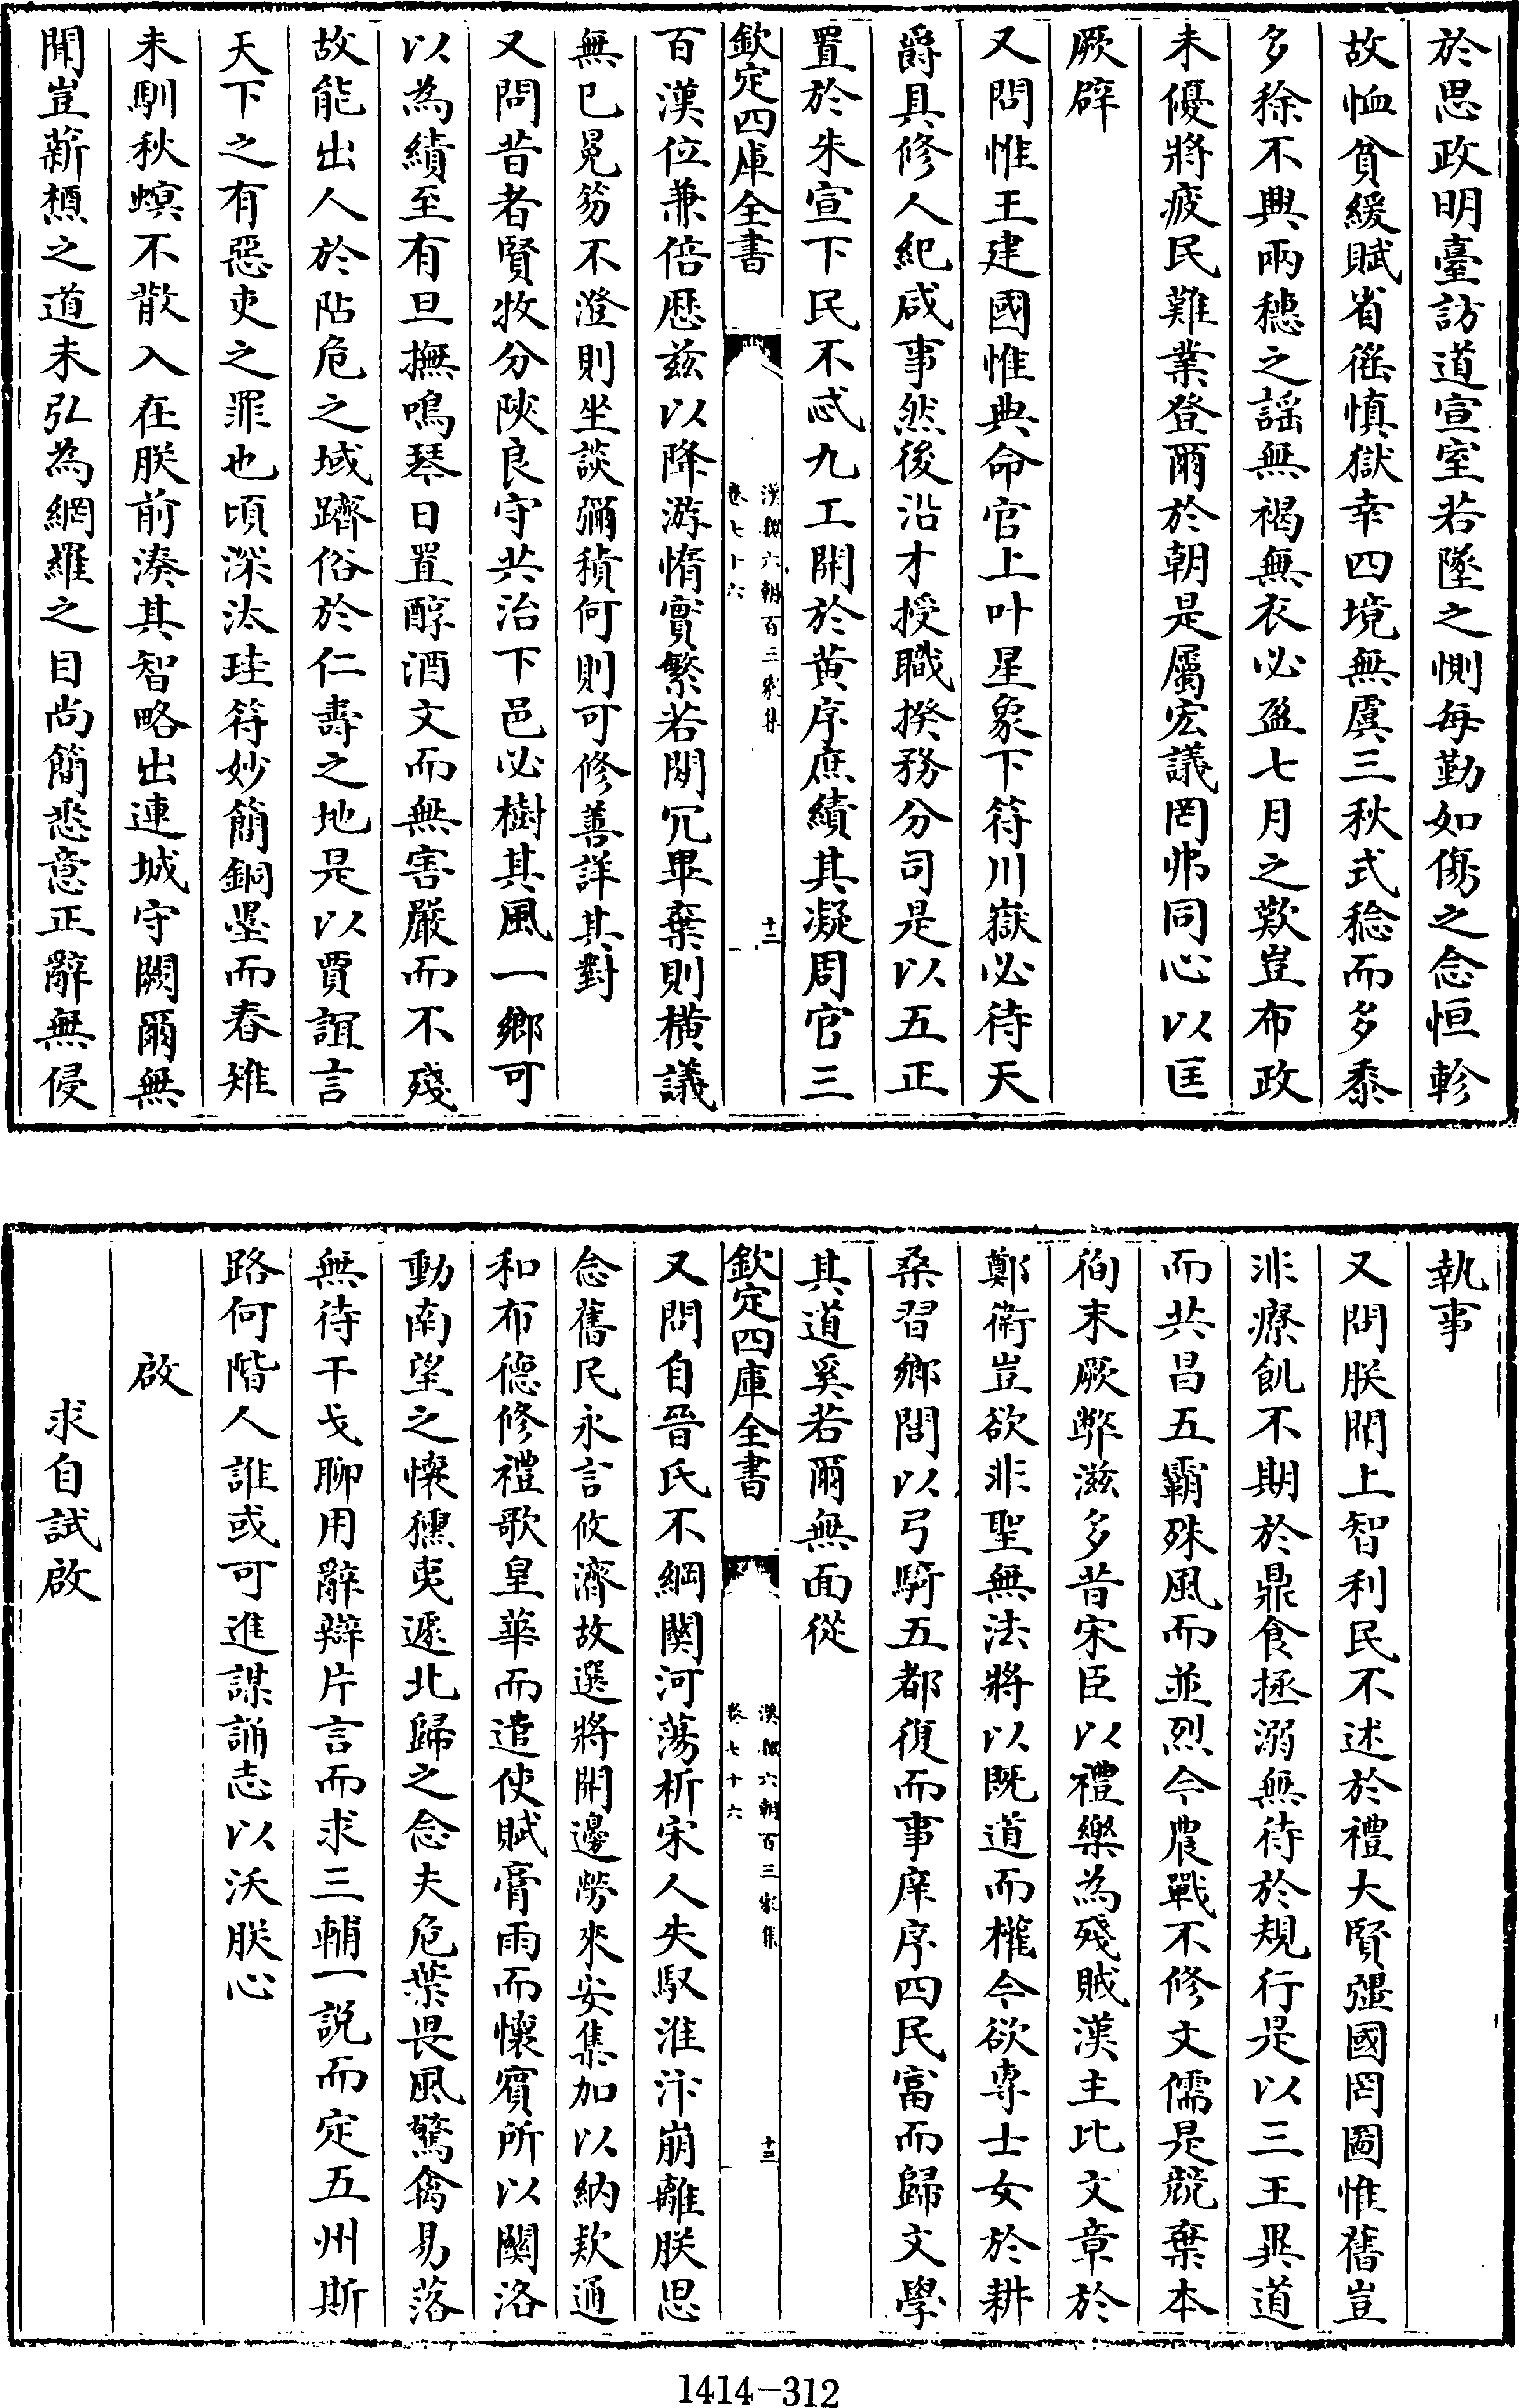 於思政明臺訪道宣室若墜之惻每勤如傷之念恒軫
故恤貧緩賦省徭慎獄幸四境無虞三秋式稔而多黍
多稌不興兩穗之謡無褐無衣必盈七月之歎豈布政
未優將疲民難業登爾於朝是屬宏議罔弗同心以匡
厥辟
又問惟王建國惟典命官上叶星象下符川嶽必待天
爵具修人紀咸事然後沿才授職揆務分司是以五正
置於朱宣下民不忒九工開於黄序庶績其凝周官三
欽定四庫全書
漢魏六朝百三家集
卷七十六
十二
百漢位兼倍歷兹以降游惰實繁若閒冗畢棄則横議
無已冕笏不澄則坐談彌積何則可修善詳其對
又問昔者賢牧分陜良守共治下邑必樹其風一鄉可
以為績至有旦撫鳴琴日置醇酒文而無害嚴而不殘
故能出人於阽危之域躋俗於仁壽之地是以賈誼言
天下之有惡吏之罪也頃深汰珪符妙簡銅墨而春雉
未馴秋螟不散入在朕前湊其智略出連城守闕爾無
聞豈薪槱之道未弘為網羅之目尚簡悉意正辭無侵
執事
又問朕聞上智利民不述於禮大賢彊國罔圖惟舊豈
非療飢不期於鼎食拯溺無待於規行是以三王異道
而共昌五霸殊風而並烈今農戰不修文儒是競棄本
徇末厥弊滋多昔宋臣以禮樂為殘賊漢主比文章於
鄭衛豈欲非聖無法將以既道而權今欲専士女於耕
桑習鄉閭以弓騎五都復而事庠序四民富而歸文學
其道奚若爾無面從
欽定四庫全書
漢魏六朝百三家集
卷七十六
十三
又問自晉氏不綱關河蕩析宋人失馭淮汴崩離朕思
念舊民永言攸濟故選將開邊勞來安集加以納欵通
和布德修禮歌皇華而遣使賦膏雨而懷賓所以關洛
動南望之懷獯夷遽北歸之念夫危葉畏風驚禽易落
無待干戈聊用辭辯片言而求三輔一説而定五州斯
路何階人誰或可進謀誦志以沃朕心
啟
求自試啟
1414—312